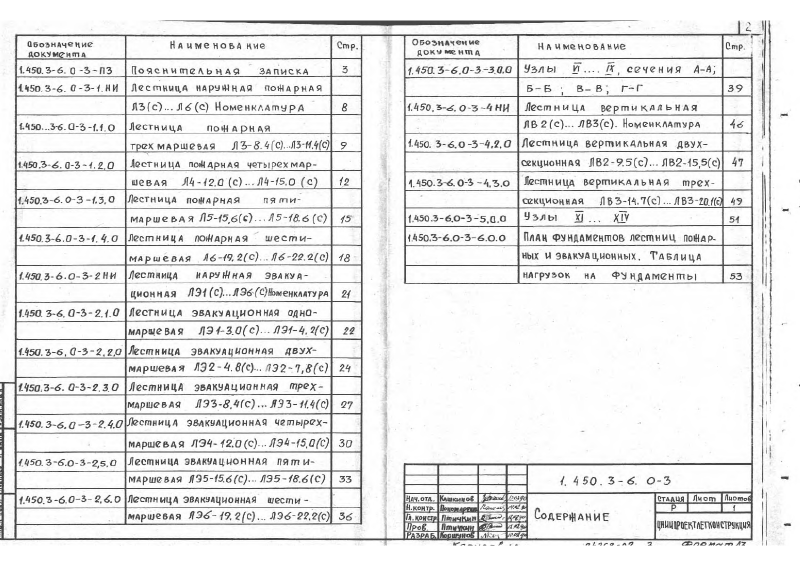 2
Обозначение документа Наименование Стр.
1.450.3-6.0-3-ПЗ Пояснительная записка 3
1.450.3-6.0-3-1.НИ Лестница наружная пожарная
Л3(с)...Л6(с) Номенклатура 8
1.450.3-6.0-3-1.1.0 Лестница пожарная
трехмаршевая Л3-8.4(с)...Л3-11.4(с) 9
1.450.3-6.0-3-1.2.0 Лестница пожарная четырехмар-
шевая Л4-12.0(с)...Л4-15.0(с) 12
1.450.3-6.0-3-1.3.0 Лестница пожарная пяти-
маршевая Л5-15,6(с)...Л5-18.6(с) 15
1.450.3-6.0-3-1.4.0 Лестница пожарная шести-
маршевая Л6-19.2(с)...Л6-22.2(с) 18
1.450.3-6.0-3-2НИ Лестница наружная эвакуа-
ционная ЛЭ1(с)...ЛЭ6(с) Номенклатура 21
1.450.3-6.0-3-2.1.0 Лестница эвакуационная одно-
маршевая ЛЭ1-3.0(с)...ЛЭ1-4.2(с) 22
1.450.3-6.0-3-2.2.0 Лестница эвакуационная двух-
маршевая ЛЭ2-4.8(с)...ЛЭ2-7,8(с) 24
1.450.3-6.0-3-2.3.0 Лестница эвакуационная трех-
маршевая ЛЭ3-8,4(с)...ЛЭ3-11,4(с) 27
1.450.3-6.0-3-2.4.0 Лестница эвакуационная четырех-
маршевая ЛЭ4-12,0(с)...ЛЭ4-15,0(с) 30
1.450.3-6.0-3-2,5,0 Лестница эвакуационная пяти-
маршевая ЛЭ5-15.6(с)...ЛЭ5-18.6(с) 33
1.450.3-6.0-3-2,6.0 Лестница эвакуационная шести-
маршевая ЛЭ6-19,2(с)...ЛЭ6-22,2(с) 36
Обозначение документа Наименование Стр.
1.450.3-6.0-3-3.0.0 Узлы VI....IX, сечения А-А;
Б-Б; В-В; Г-Г 39
1.450.3-6.0-3-4НИ Лестница вертикальная
ЛВ2(с)...ЛВ3(с). Номенклатура 46
1.450.3-6.0-3-4.2.0 Лестница вертикальная двух-
секционная ЛВ2-9.5(с)...ЛВ2-15,5(с) 47
1.450.3-6.0-3-4.3.0 Лестница вертикальная трех-
секционная ЛВ3-14.7(с)...ЛВ3-20.1(с) 49
1.450.3-6.0-3-5.0.0 Узлы XI... XIV 51
1.450.3-6.0-3-6.0.0 План фундаментов лестниц пожар-
ных и эвакуационных. Таблица
нагрузок на фундаменты 53
1.450.3-6.0-3
Нач.отд.
Н.контр.
Гл.констр. Птичкин
Пров. Птичкин
Разраб. Коршунов
Содержание
Стадия Лист Листов
Р 1
ЦНИИПРОЕКТЛЕГКОНСТРУКЦИЯ
Формат А3